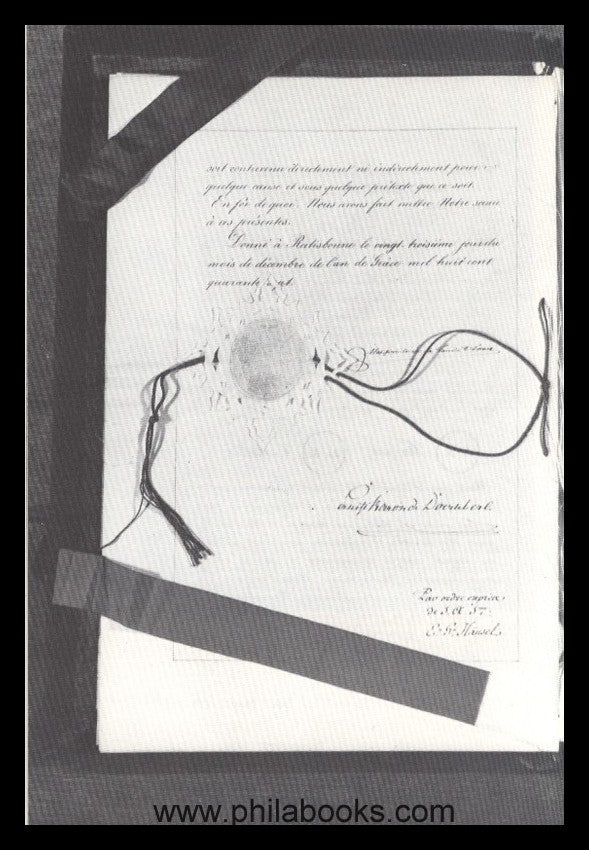 soit contrevenu directement ni indirectement pour
quelque cause et sous quelque prétexte que ce soit.
En foi de quoi, Nous avons fait mettre Notre sceau
à ces présentes.
Donné à Ratisbonne le vingt-troisième jour du
mois de décembre de l'an de Grâce mil huit cent
quarante
de la
Par ordre exprès
de S. A. S.
www.philabooks.com